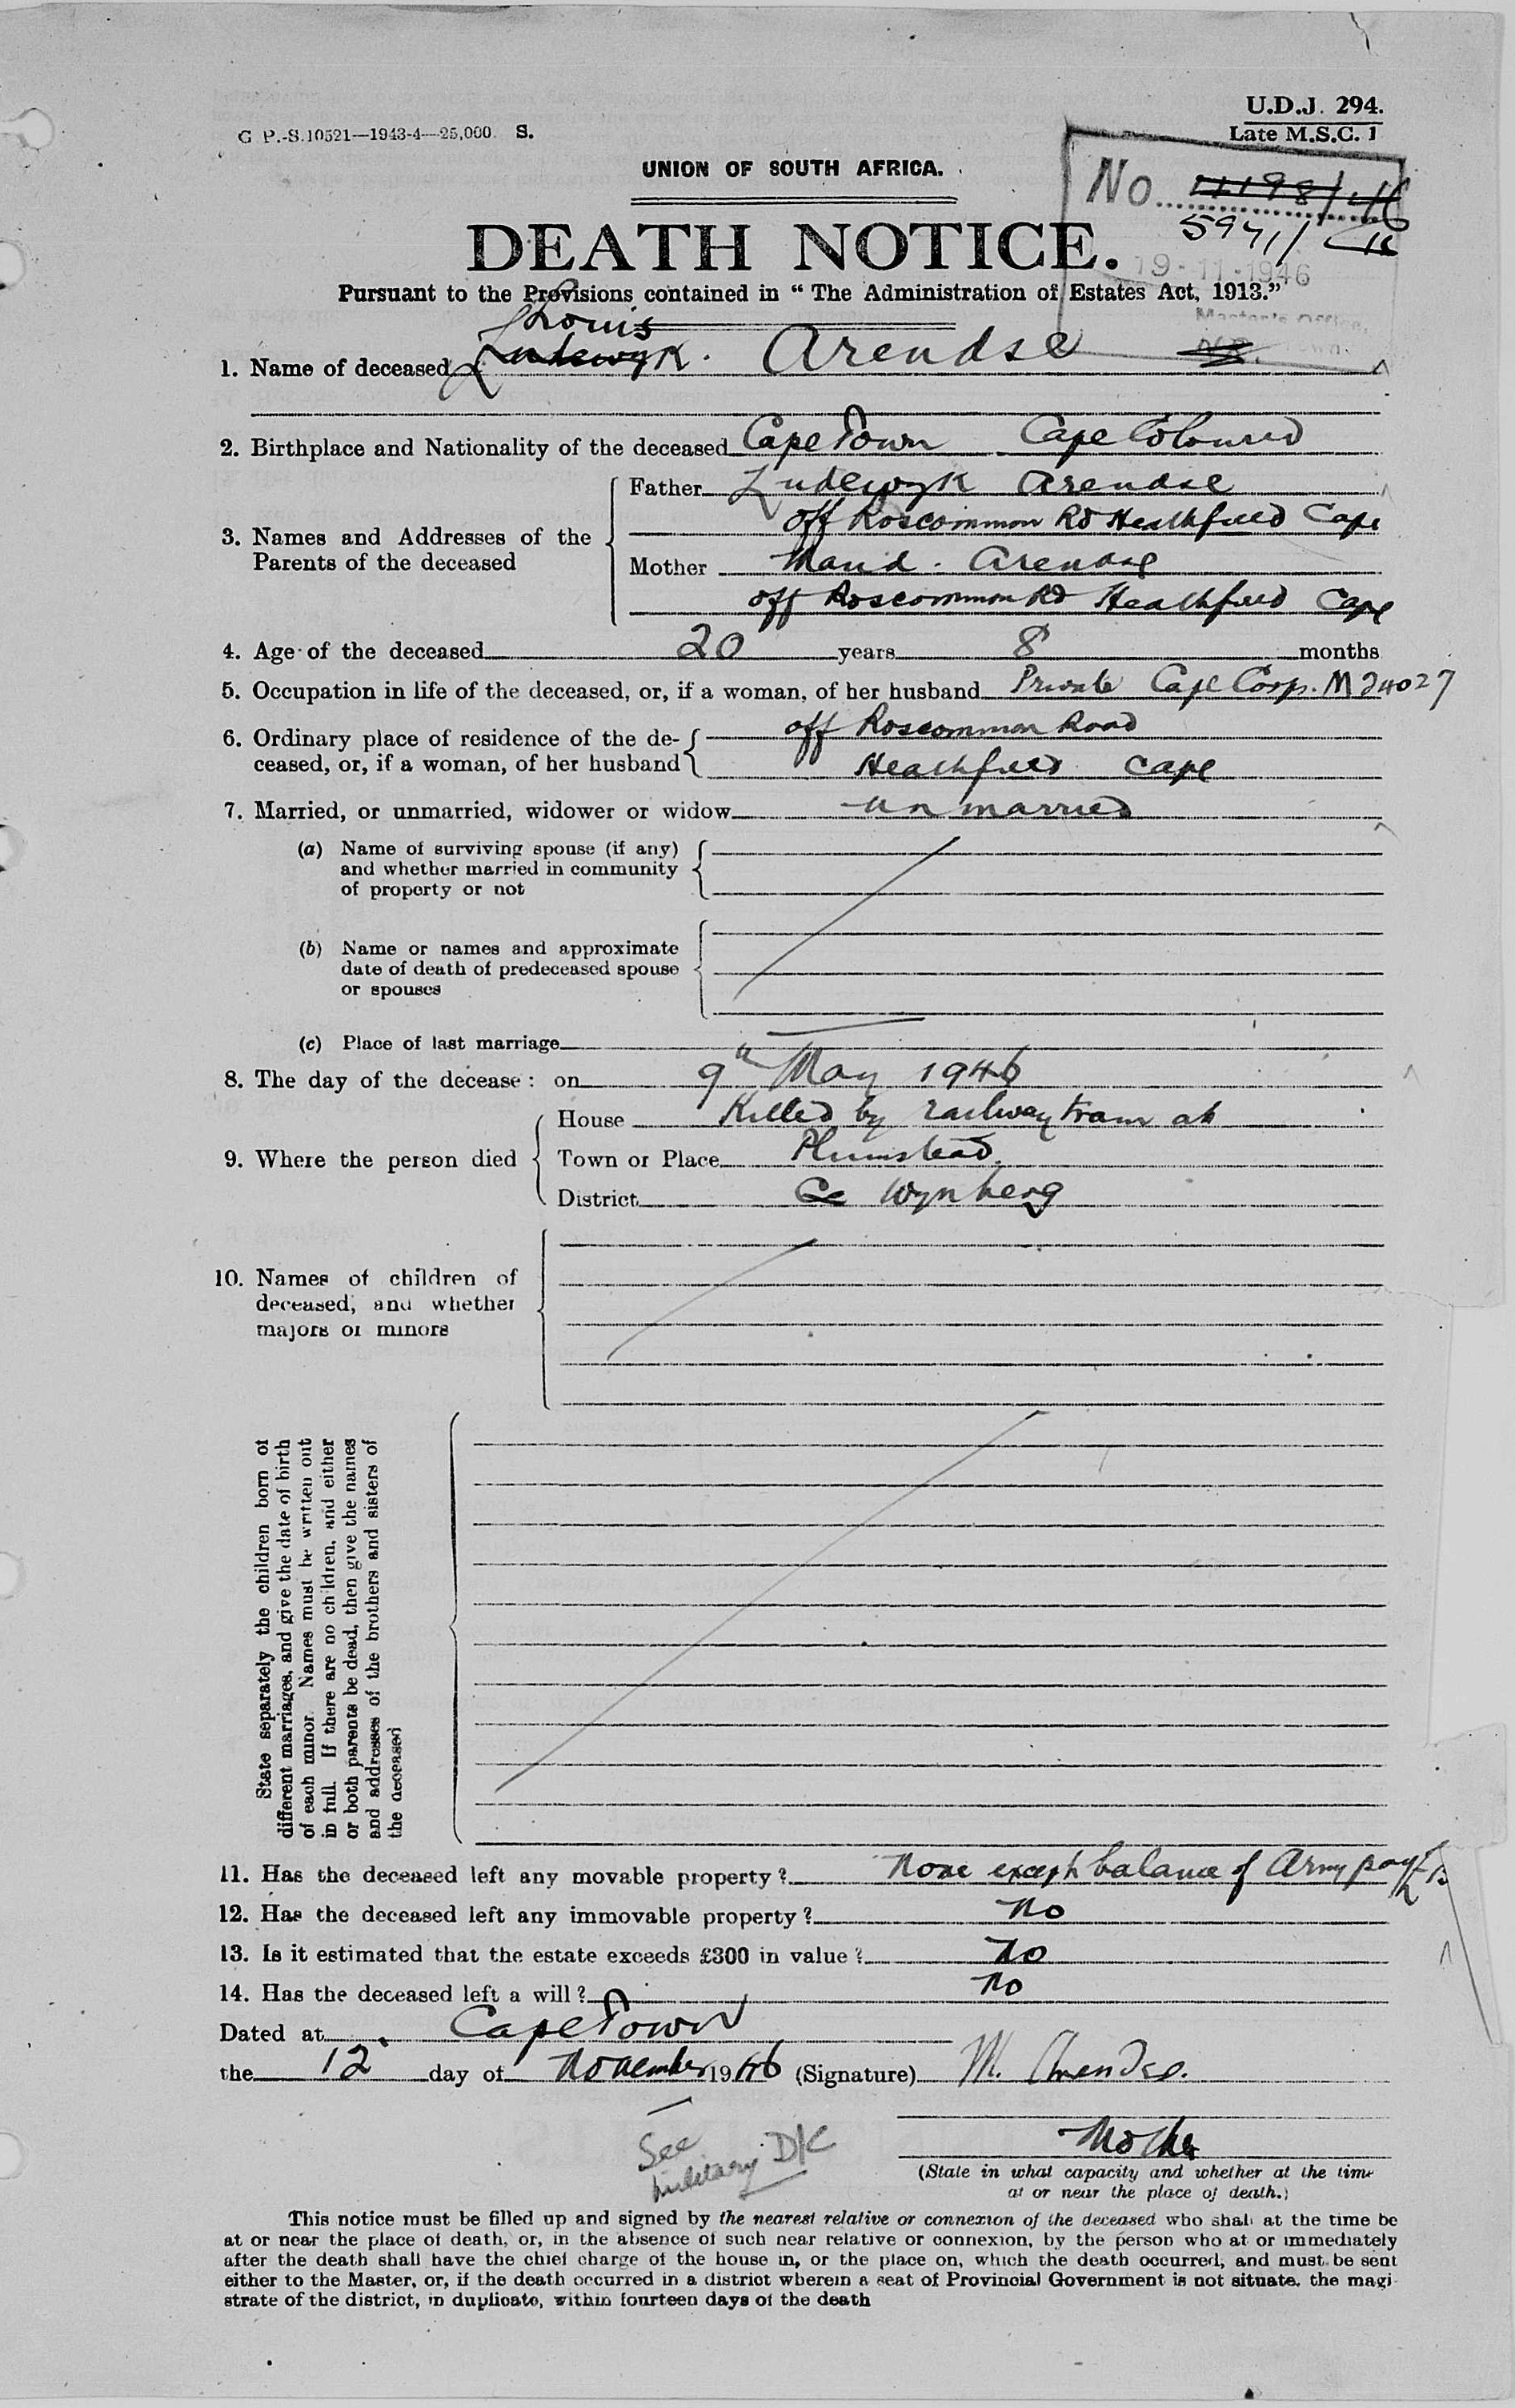 U.D.J. 294.
Late M.S.C. 1
G P.-S.10521—1943-4—25,000. S.
UNION OF SOUTH AFRICA.
No 11198/46
5971/46
DEATH NOTICE.
19-11-1946
Pursuant to the Provisions contained in “ The Administration of Estates Act, 1913.”
Master's Office,
Louis
1. Name of deceased Ludewyk. Arendse
2. Birthplace and Nationality of the deceased Cape Town Cape Coloured
3. Names and Addresses of the Parents of the deceased
Father Ludewyk Arendse
off Roscommon Rd Heathfield Cape
Mother Maud. Arendse
off Roscommon Rd Heathfield Cape
4. Age of the deceased 20 years 8 months
5. Occupation in life of the deceased, or, if a woman, of her husband Private Cape Corps. M 24027
6. Ordinary place of residence of the de- off Roscommon Road
ceased, or, if a woman, of her husband Heathfield Cape
7. Married, or unmarried, widower or widow unmarried
(a) Name of surviving spouse (if any)
and whether married in community
of property or not
(b) Name or names and approximate
date of death of predeceased spouse
or spouses
(c) Place of last marriage
8. The day of the decease: on 9th May 1946
9. Where the person died
House Killed by railway train at
Town or Place Plumstead.
District Wynberg
10. Names of children of
deceased, and whether
majors or minors
State separately the children born of
different marriages, and give the date of birth
of each minor. Names must be written out
in full. If there are no children, and either
or both parents be dead, then give the names
and addresses of the brothers and sisters of
the deceased
11. Has the deceased left any movable property? None except balance of Army pay
12. Has the deceased left any immovable property? No
13. Is it estimated that the estate exceeds £300 in value? No
14. Has the deceased left a will? No
Dated at Cape Town
the 12 day of November 1946 (Signature) M. Arendse.
Mother
See
military D/C
(State in what capacity and whether at the time
at or near the place of death.)
This notice must be filled up and signed by the nearest relative or connexion of the deceased who shall at the time be
at or near the place of death, or, in the absence of such near relative or connexion, by the person who at or immediately
after the death shall have the chief charge of the house in, or the place on, which the death occurred, and must be sent
either to the Master, or, if the death occurred in a district wherein a seat of Provincial Government is not situate, the magi-
strate of the district, in duplicate, within fourteen days of the death